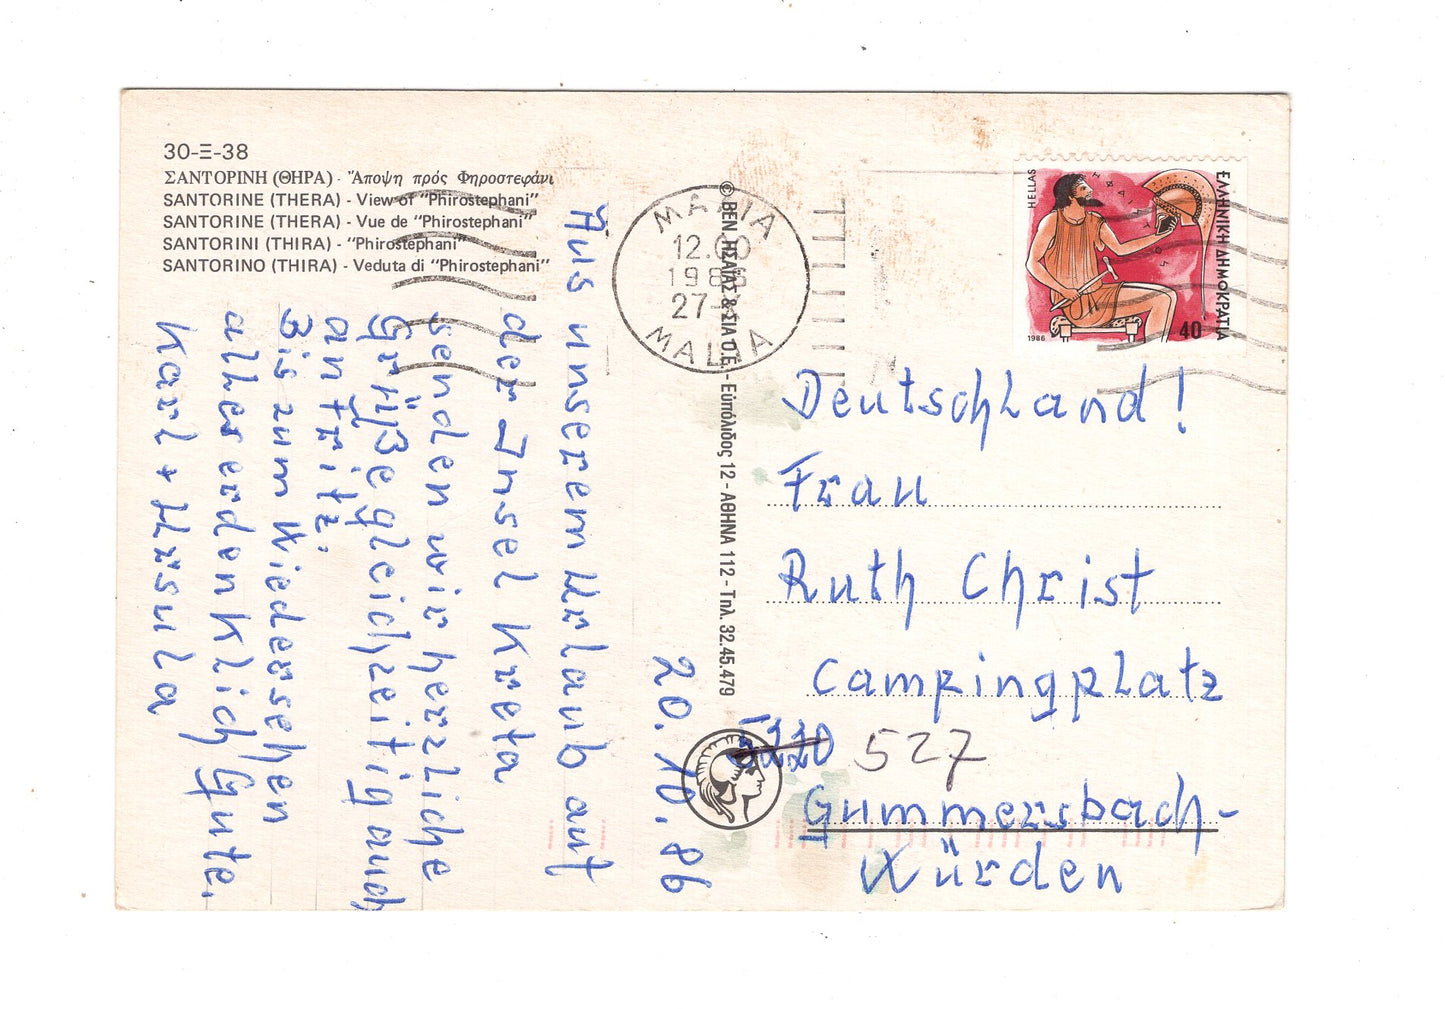 30-Ξ-38
ΣΑΝΤΟΡΙΝΗ (ΘΗΡΑ) - Ἄποψη πρός Φηροστεφάνι
SANTORINE (THERA) - View of "Phirostephani"
SANTORINE (THERA) - Vue de "Phirostephani"
SANTORINI (THIRA) - "Phirostephani"
SANTORINO (THIRA) - Veduta di "Phirostephani"
20.10.86
Aus unserem Urlaub auf
der Insel Kreta
senden wir herzliche
Grüße gleichzeitig auch
an Fritz.
Bis zum Wiedersehen
alles erdenklich Gute.
Karl + Ursula
© ΒΕΝ. ΗΣΑΪΑΣ & ΣΙΑ Ο.Ε. - Εὐπόλιδος 12 - ΑΘΗΝΑ 112 - Τηλ. 32.45.479
ΜΑΛΙΑ
12.00
1986
27
MALIA
HELLAS
ΕΛΛΗΝΙΚΗ ΔΗΜΟΚΡΑΤΙΑ
1986
40
Deutschland!
Frau
Ruth Christ
Campingplatz
5220 527
Gummersbach-
Würden